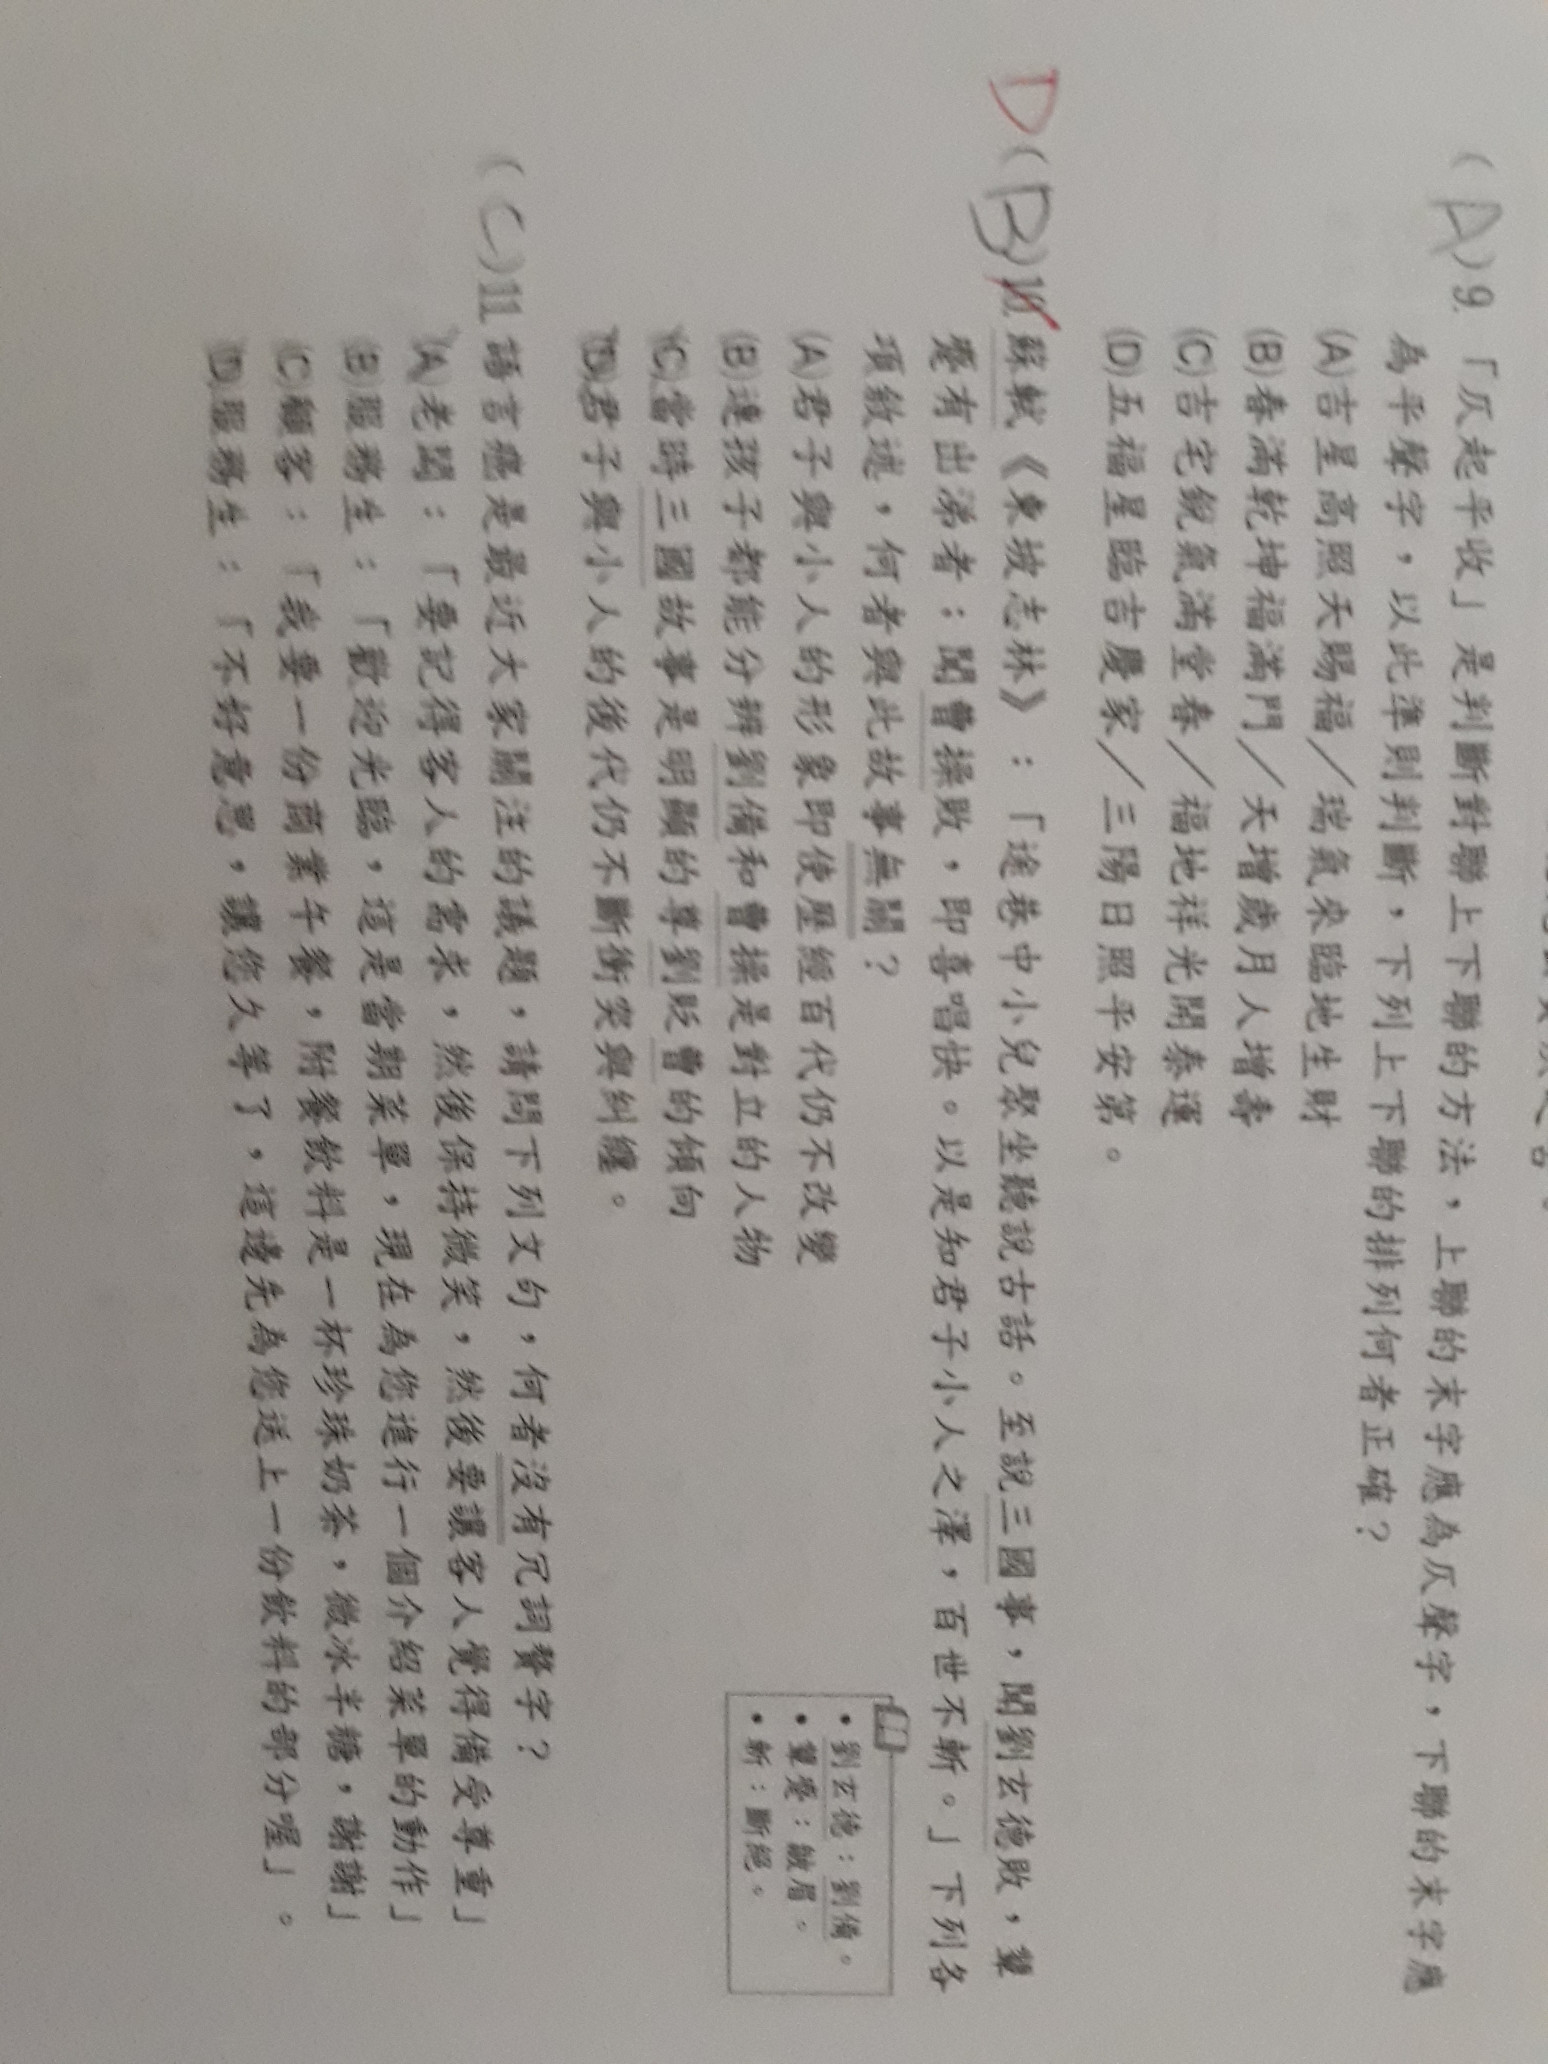 (A)9.「仄起平收」是判斷對聯上下聯的方法，上聯的末字應為仄聲字，下聯的末字應
為平聲字，以此準則判斷，下列上下聯的排列何者正確？
(A)吉星高照天賜福／瑞氣來臨地生財
(B)春滿乾坤福滿門／天增歲月人增壽
(C)吉宅銳氣滿堂春／福地祥光開泰運
(D)五福星臨吉慶家／三陽日照平安第。
D(B)10.蘇軾《東坡志林》：「途巷中小兒聚坐聽說古話。至說三國事，聞劉玄德敗，顰
蹙有出涕者；聞曹操敗，即喜唱快。以是知君子小人之澤，百世不斬。」下列各
項敘述，何者與此故事無關？
(A)君子與小人的形象即使歷經百代仍不改變
(B)連孩子都能分辨劉備和曹操是對立的人物
(C)當時三國故事是明顯的尊劉貶曹的傾向
(D)君子與小人的後代仍不斷衝突與糾纏。
•劉玄德：劉備。
•顰蹙：皺眉。
•斬：斷絕。
(C)11.語言癌是最近大家關注的議題，請問下列文句，何者沒有冗詞贅字？
(A)老闆：「要記得客人的需求，然後保持微笑，然後要讓客人覺得備受尊重」
(B)服務生：「歡迎光臨，這是當期菜單，現在為您進行一個介紹菜單的動作」
(C)顧客：「我要一份商業午餐，附餐飲料是一杯珍珠奶茶，微冰半糖，謝謝」
(D)服務生：「不好意思，讓您久等了，這邊先為您送上一份飲料的部分喔」。